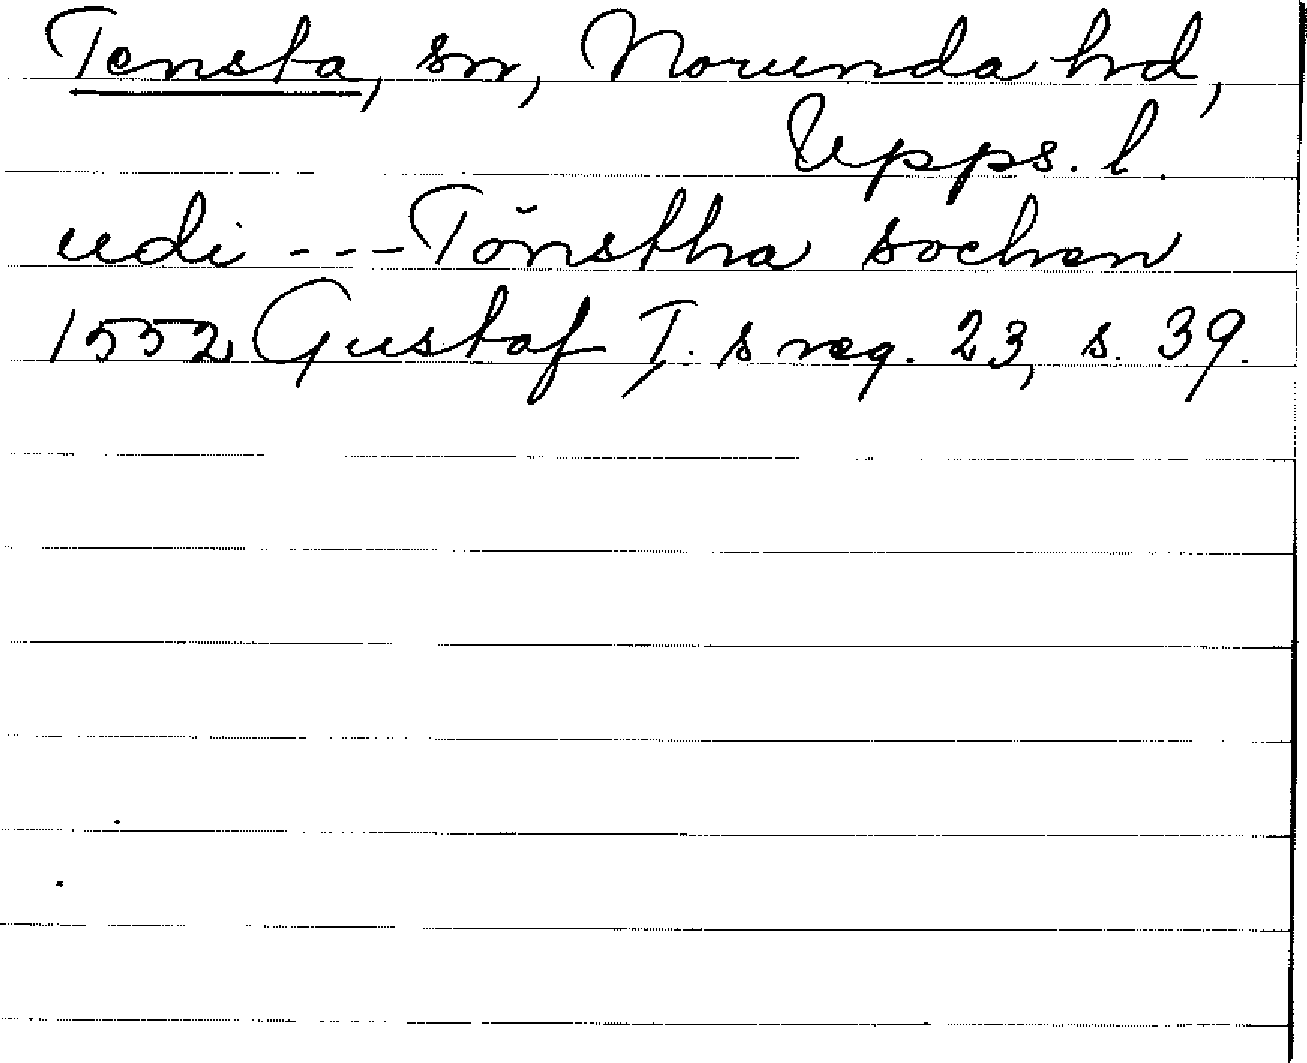 Tensta, sn, Norunda hrd,
Upps. l.
udi --- Tönstha sochen
1552 Gustaf I. s reg. 23, s. 39.